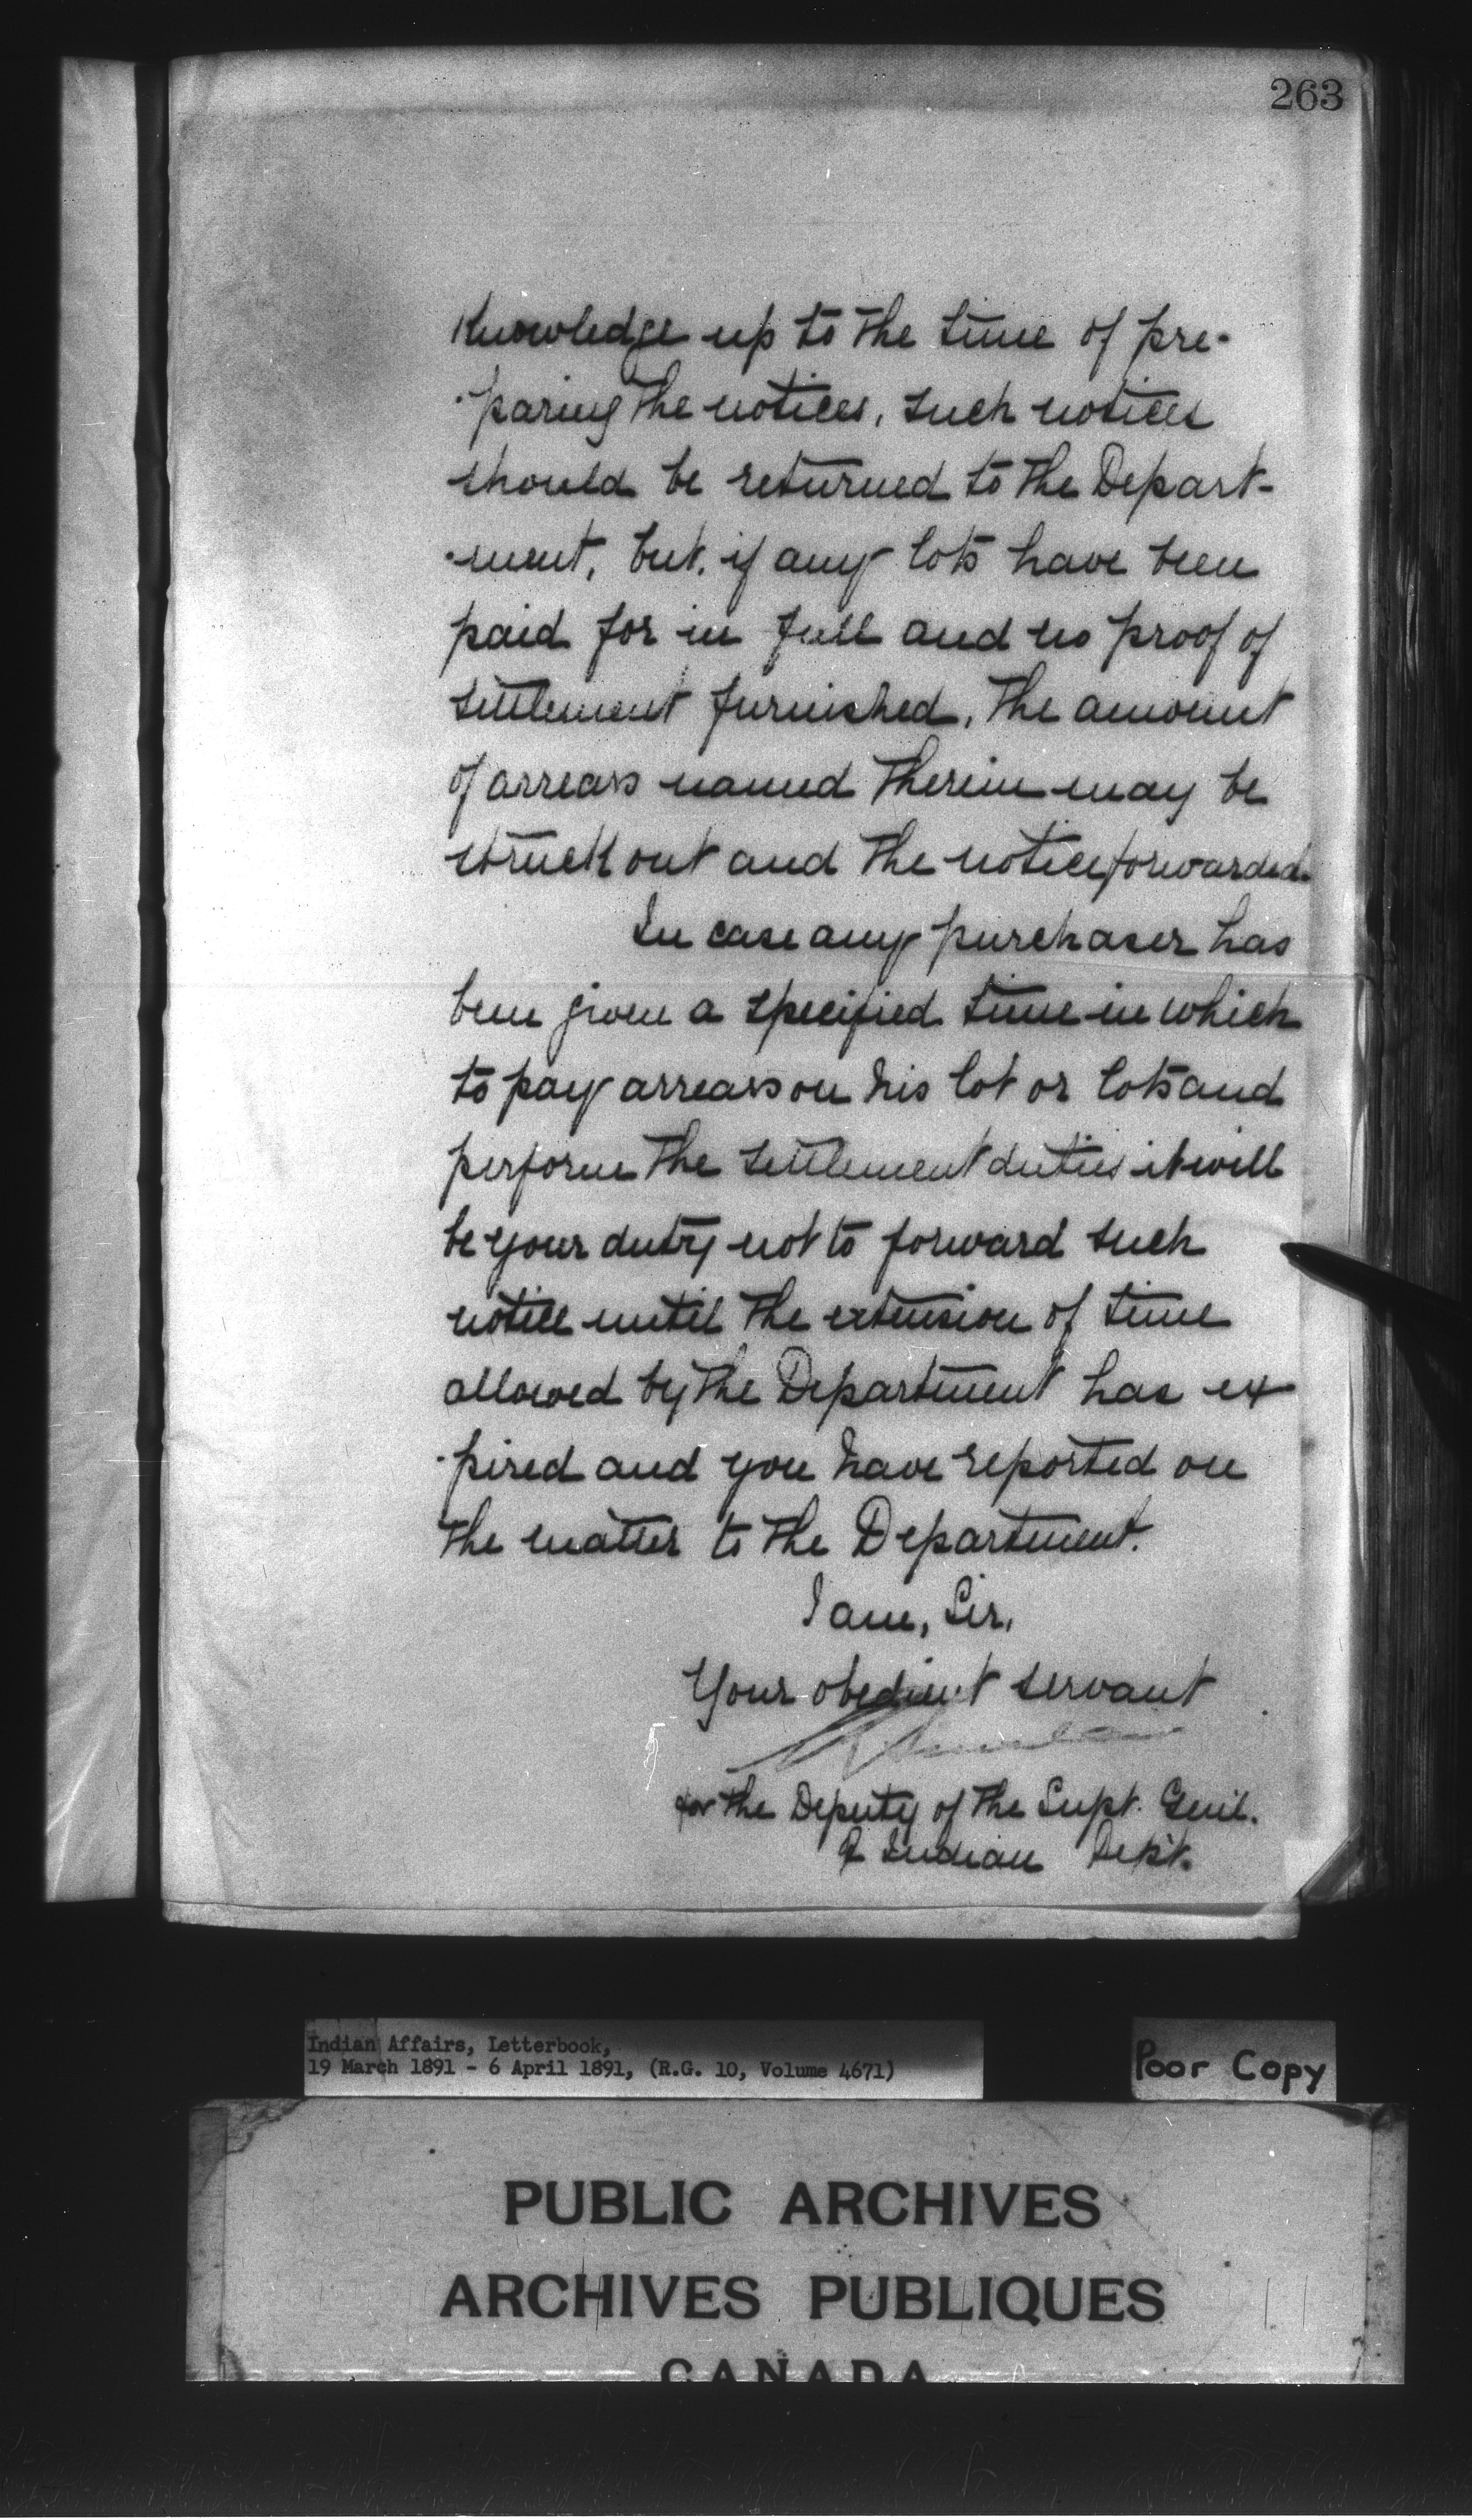 263
Knowledge up to the time of pre-
-paring the notices, such notices
should be returned to the Depart-
-ment, but, if any lots have been
paid for in full and no proof of
settlement furnished, the amount
of arrears named therein may be
struck out and the notice forwarded.
In case any purchaser has
been given a specified time in which
to pay arrears on his lot or lots and
perform the settlement duties it will
be your duty not to forward such
notice until the extension of time
allowed by the Department has ex
-pired and you have reported on
the matter to the Department.
I am, Sir,
Your obedient servant
for the Deputy of the Supt. Genl.
of Indian Dept.
Indian Affairs, Letterbook,
19 March 1891 - 6 April 1891, (R.G. 10, Volume 4671)
Poor Copy
PUBLIC ARCHIVES
ARCHIVES PUBLIQUES
CANADA